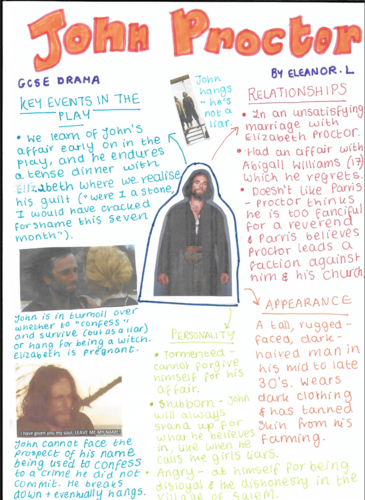 John Proctor
GCSE DRAMA
BY ELEANOR.L
KEY EVENTS IN THE
PLAY
• We learn of John's
affair early on in the
play, and he endures
a tense dinner with
Elizabeth where we realise
his guilt ("were I a stone,
I would have cracked
for shame this seven
month").
John is in turmoil over
whether to "confess"
and survive (but as a liar)
or hang for being a witch.
Elizabeth is pregnant.
I have given you my soul, LEAVE ME MY NAME!
John cannot face the
prospect of his name
being used to confess
to a crime he did not
commit. He breaks
down + eventually hangs.
John
hangs
- he's
not a
liar.
RELATIONSHIPS
• In an unsatisfying
marriage with
Elizabeth Proctor.
• Had an affair with
Abigail Williams (17)
which he regrets.
• Doesn't like Parris
- Proctor thinks
he is too fanciful
for a reverend
& Parris believes
Proctor leads a
faction against
him & his church.
PERSONALITY
• Tormented -
cannot forgive
himself for his
affair.
• Stubborn - John
will always
stand up for
what he believes
in, like when he
calls the girls liars.
• Angry - at himself for being
disloyal & the dishonesty in the
village of Salem.
APPEARANCE
A tall, rugged-
faced, dark-
haired man in
his mid to late
30's. Wears
dark clothing
& has tanned
skin from his
farming.